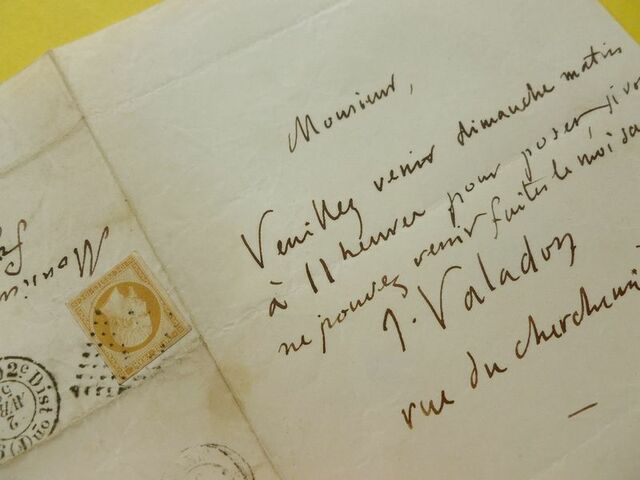 Monsieur,
Veuillez venir dimanche matin
à 11 heures pour poser, si vo
ne pouvez venir faites le moi sa
J. Valadon
rue du cherchemi
Monsieu
2e Dist